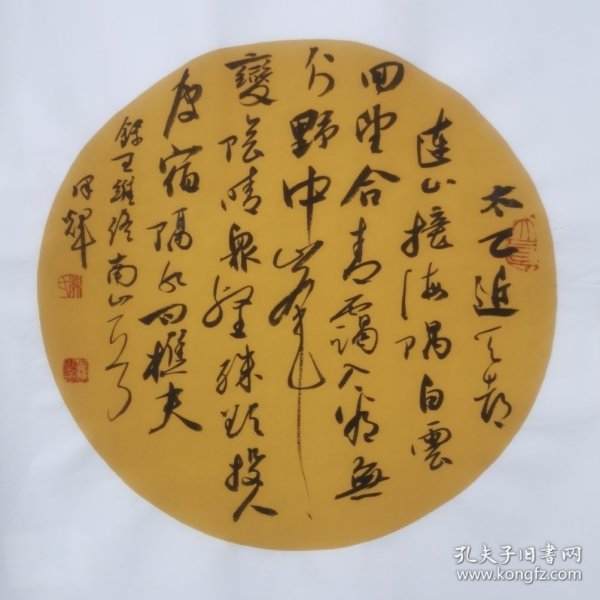 太乙近天都
連山接海隅白雲
回望合青靄入看無
分野中峯
變陰晴衆壑殊欲投人
處宿隔水問樵夫
錄王維終南山
輝
孔夫子旧书网
www.kongfz.com